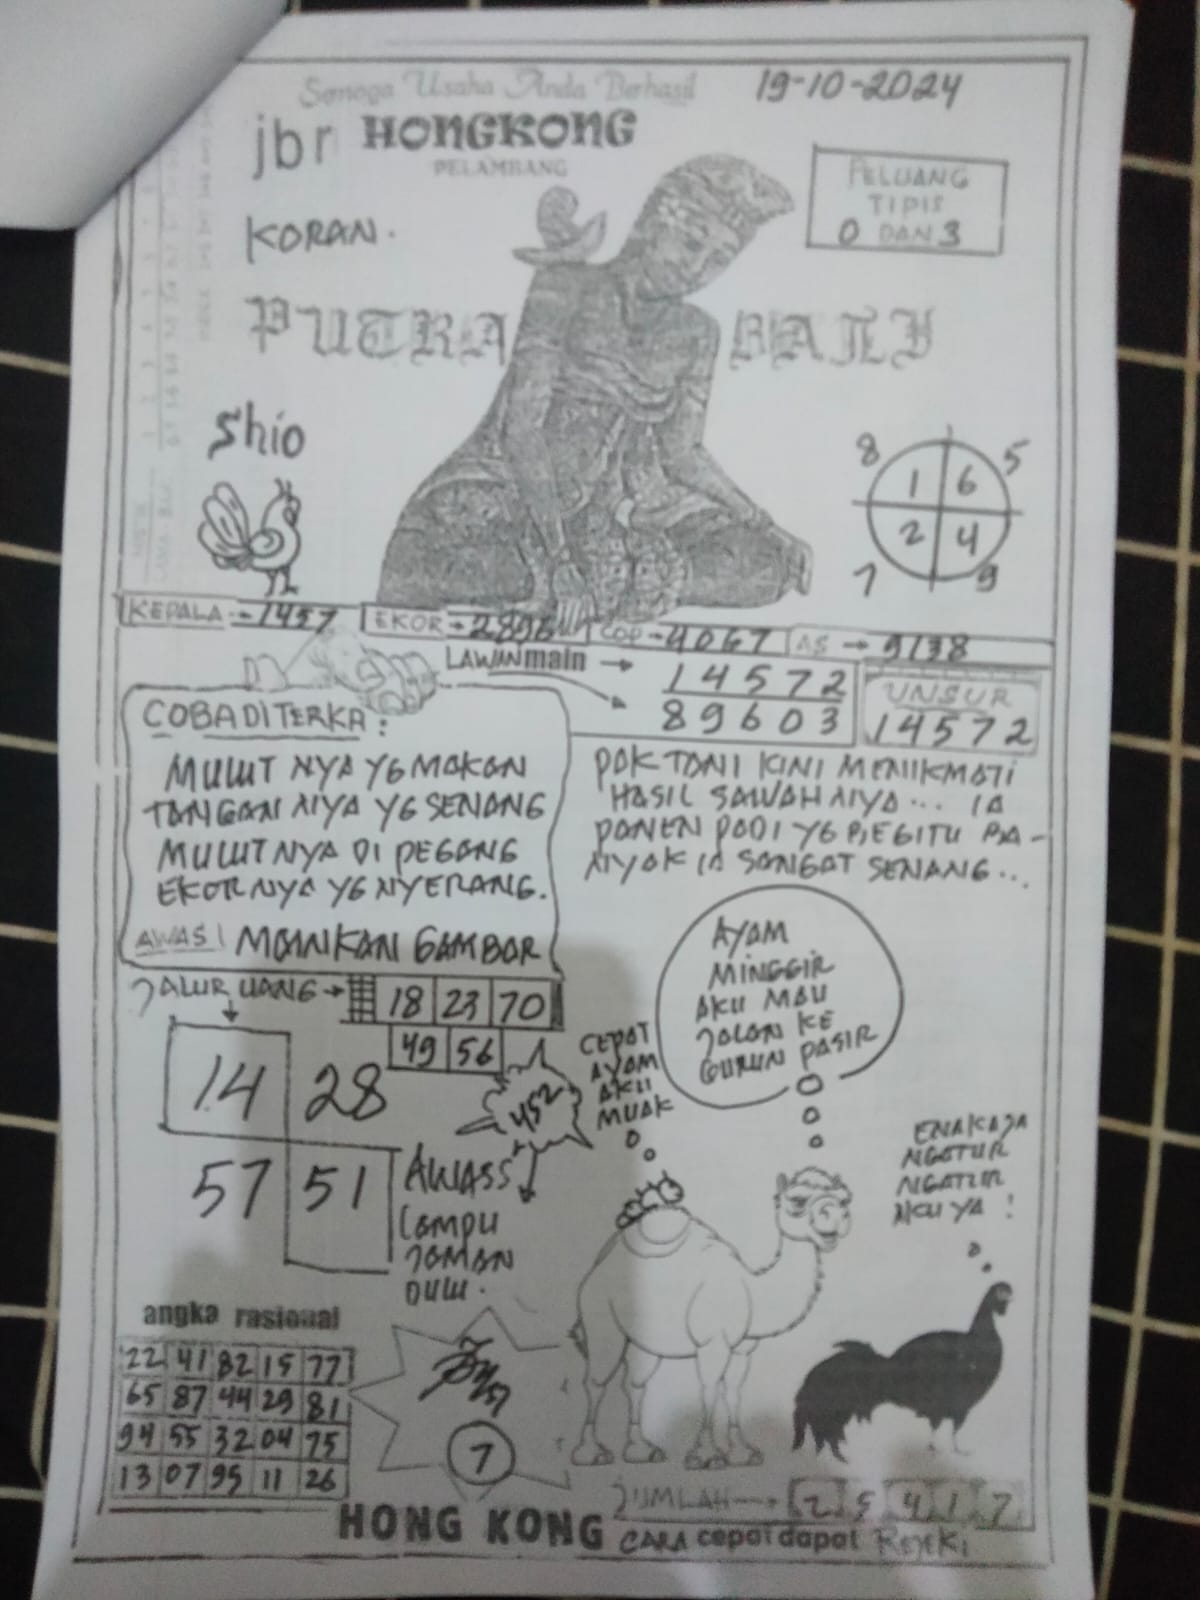 Semoga Usaha Anda Berhasil
19-10-2024
jbr HONGKONG
PELAMBANG
PELUANG
TIPIS
0 DAN 3
KORAN.
PUTRA BALI
Shio
8 5
1 6
2 4
7 9
KEPALA → 1457
EKOR → 2896
COP → 4067
AS → 9138
LAWAN main → 14572
89603
UNSUR
14572
COBA DITERKA :
MULUT NYA YG MAKAN
TANGAN NYA YG SENANG
MULUT NYA DI PEGANG
EKOR NYA YG NYERANG.
AWAS! MAINKAN GAMBAR
PAK TANI KINI MENIKMATI
HASIL SAWAH NYA... IA
PANEN PADI YG BEGITU BA-
NYAK IA SANGAT SENANG...
JALUR UANG →
18 23 70
49 56
14 28
57 51
452
AWASS
LAMPU
JAMAN
DULU.
CEPAT
AYAM
AKU
MUAK
AYAM
MINGGIR
AKU MAU
JALAN KE
GURUN PASIR
ENAK AJA
NGATUR
NGATUR
AKU YA !
angka rasional
22 41 82 15 77
65 87 44 29 81
94 55 32 04 75
13 07 95 11 26
7
JUMLAH → 2 5 4 1 7
HONG KONG CARA cepat dapat REJEKI